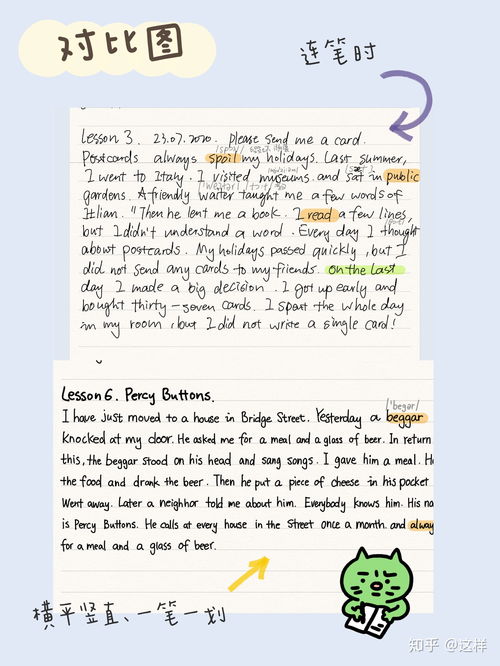 对比图
连笔时
Lesson 3. 23.07.2020. Please send me a card.
Postcards always spoil my holidays. Last summer,
I went to Italy. I visited museums. and sat in public
gardens. A friendly waiter taught me a few words of
Itlian. "Then he lent me a book. I read a few lines,
but I didn't understand a word. Every day I thought
about postcards. My holidays passed quickly, but I
did not send any cards to my friends. on the last
day I made a big decision. I got up early and
bought thirty-seven cards. I spent the whole day
in my room, but I did not write a single card!
Lesson 6. Percy Buttons.
/'begər/
I have just moved to a house in Bridge Street. Yesterday a beggar
knocked at my door. He asked me for a meal and a glass of beer. In return
this, the beggar stood on his head and sang songs. I gave him a meal. He
the food and drank the beer. Then he put a piece of cheese in his pocket
Went away. Later a neighbor told me about him. Everybody knows him. His na
is Percy Buttons. He calls at every house in the Street once a month. and alway
for a meal and a glass of beer.
横平竖直、一笔一划
知乎 @这样